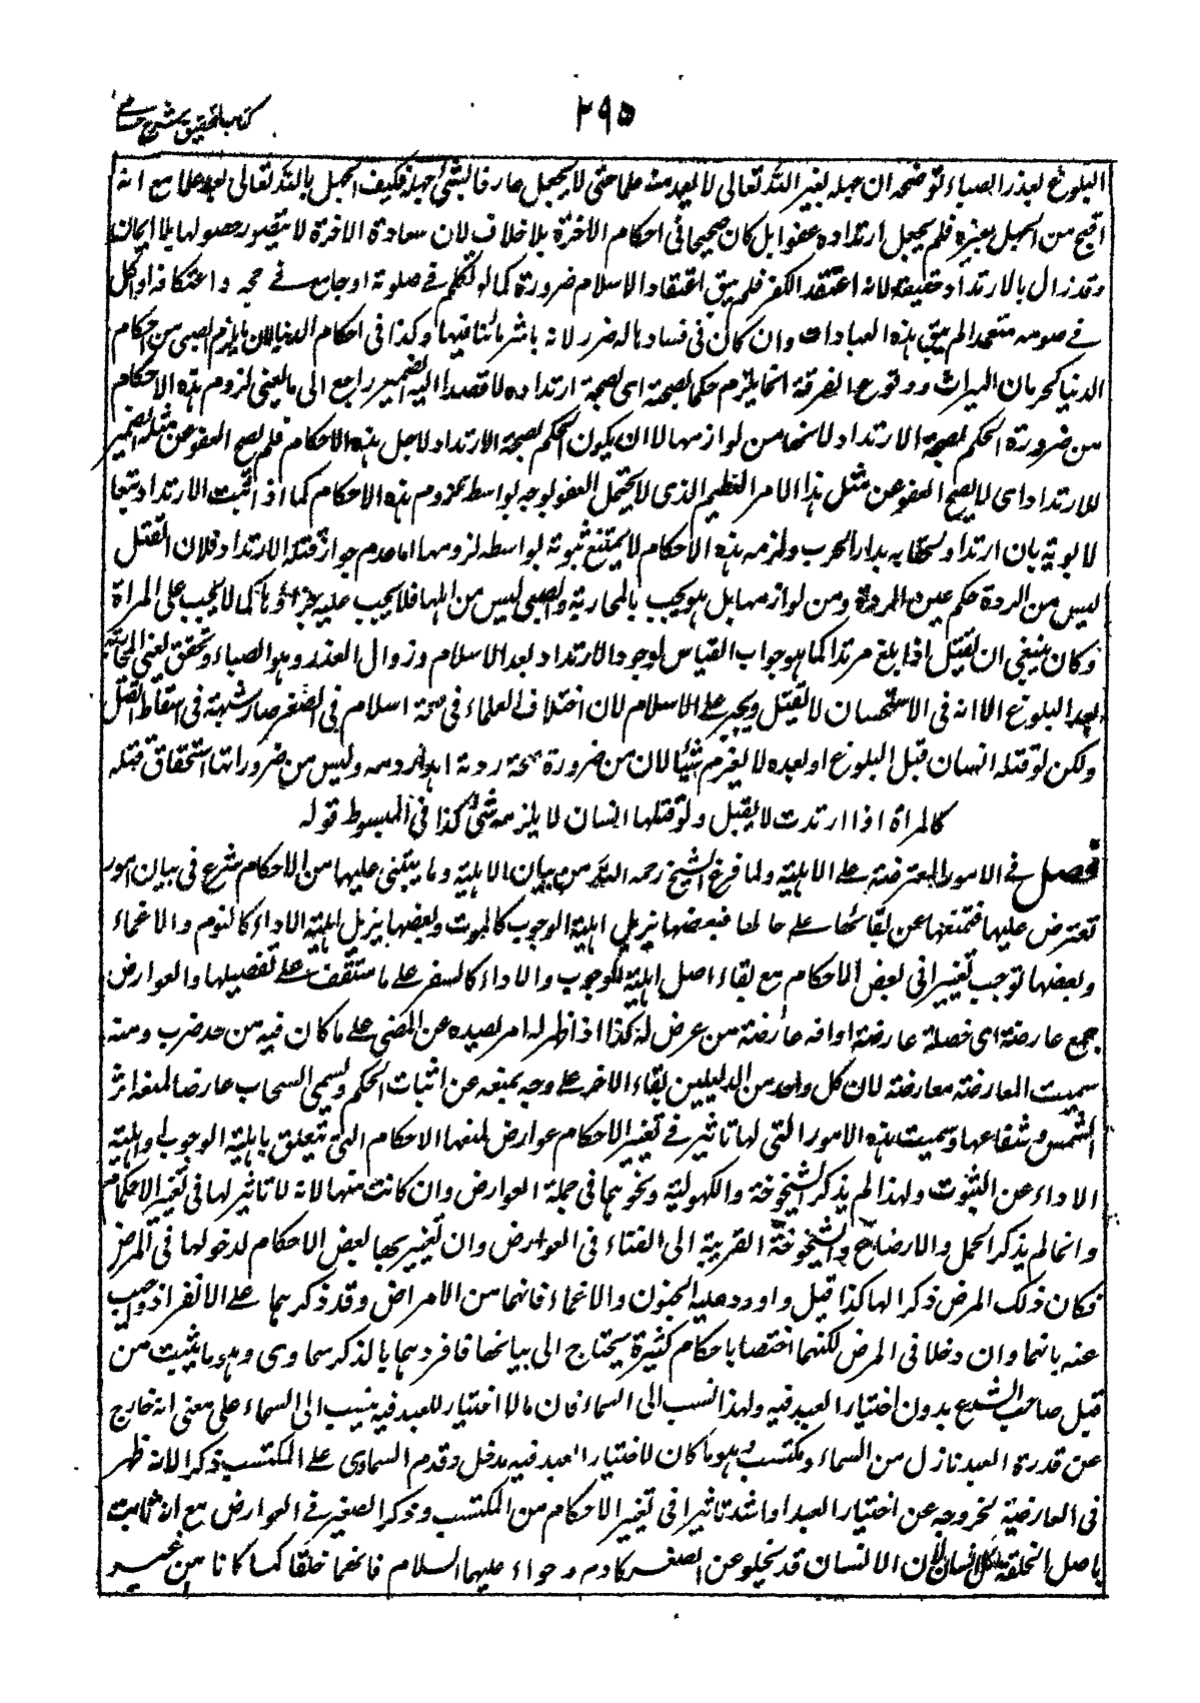 ٢٩٥
كتاب التحقيق شرح حسامي
البلوغ بعذر الصباء توضحه ان جهله بغير الله تعالى لا يعد منه علما حتى لا يجعل عارفا لشئ جهله فكيف الجهل بالله تعالى يعد علما مع انه
اقبح من الجهل بغيره فلم يجعل ارتداده عفوا بل كان صحيحا في احكام الاخرة بلا خلاف لان سعادة الاخرة لا يتصور حصولها بلا ايمان
وقد زال بالارتداد حقيقة لانه اعتقد الكفر فلم يبق اعتقاد الاسلام ضرورة كما لو تكلم في صلوته او جامع في حجه واعتكافه او اكل
في صومه متعمدا لم يبق هذه العبادات وان كان في فسادها له ضرر لانه باشر ما ينافيها وكذا في احكام الدنيا لان ما يلزم الصبي من احكام
الدنيا كحرمان الميراث ووقوع الفرقة انما يلزم حكما لصحته اى لصحة ارتداده لا قصدا اليه الضمير راجع الى ما يعني لزوم هذه الاحكام
من ضرورة الحكم لصحة الارتداد لانها من لوازمها لا ان يكون الحكم لصحة الارتداد لاجل هذه الاحكام فلم يصح العفو عن مثله الضمير
للارتداد اى لا يصح العفو عن مثل هذا الامر العظيم الذى لا يحتمل العفو بوجه بواسطة لزوم هذه الاحكام كما اذا ثبت الارتداد تبعا
لابويه بان ارتدا ولحقا به بدار الحرب ولزمه هذه الاحكام لا يمتنع ثبوته بواسطة لزومها اما عدم جواز قتله بالارتداد فلان القتل
ليس من الردة حكم عين الردة ومن لوازمها بل هو يجب بالمحاربة والصبي ليس من اهلها فلا يجب عليه جزاؤها كما لا يجب على المرأة
وكان ينبغي ان يقتل اذا بلغ مرتدا كما هو جواب القياس لوجود الارتداد بعد الاسلام وزوال العذر وهو الصباء وتحقق معنى المحاربة
بعد البلوغ الا انه في الاستحسان لا يقتل ويجبر على الاسلام لان اختلاف العلماء في صحة اسلامه في الصغر صار شبهة في اسقاط القتل
ولكن لو قتله انسان قبل البلوغ او بعده لا يغرم شيئا لان من ضرورة صحة ردته اهدار دمه وليس من ضروراتها استحقاق قتله
كالمرأة اذا ارتدت لا يقبل ولو قتلها انسان لا يلزمه شئ كذا في المبسوط قوله
فصل في الامور المعترضة على الاهلية ولما فرغ الشيخ رحمه الله من بيان الاهلية وما يبتني عليها من الاحكام شرع في بيان امور
تعترض عليها فتمنعها عن بقائها على حالها فبعضها يزيل اهلية الوجوب كالموت وبعضها يزيل اهلية الاداء كالنوم والاغماء
وبعضها توجب تغييرا في بعض الاحكام مع بقاء اصل اهلية الوجوب والاداء كالسفر على ما ستقف على تفصيلها والعوارض
جمع عارضة اى خصلة عارضة او افة عارضة من عرض له كذا اذا ظهر له امر يصده عن المضي على ما كان فيه من حد ضرب ومنه
سميت المعارضة معارضة لان كل واحد من الدليلين يقابل الاخر على وجه يمنعه عن اثبات الحكم ويسمى السحاب عارضا لمنعه اثر
الشمس وشعاعها وسميت هذه الامور التى لها تاثير في تغيير الاحكام عوارض لمنعها الاحكام التى تتعلق باهلية الوجوب او اهلية
الاداء عن الثبوت ولهذا لم يذكر الشيخوخة والكهولة ونحوهما في جملة العوارض وان كانت منها لانه لا تاثير لها في تغيير الاحكام
وانما لم يذكر الحمل والارضاع والشيخوخة القريبة الى الفناء في العوارض وان تغير بها بعض الاحكام لدخولها في المرض
فكان ذلك المرض ذكرا لها كذا قيل واورد عليه الجنون والاغماء فانهما من الامراض وقد ذكرهما على الانفراد واجيب
عنه بانهما وان دخلا في المرض لكنهما اختصا باحكام كثيرة يحتاج الى بيانها فافردهما بالذكر سماوى وهو ما يثبت من
قبل صاحب الشرع بدون اختيار العبد فيه ولهذا نسب الى السماء فان مالا اختيار للعبد فيه ينسب الى السماء على معنى انه خارج
عن قدرة العبد نازل من السماء ومكتسب وهو ما كان لاختيار العبد فيه مدخل وقدم السماوى على المكتسب ذكرا لانه اظهر
في العارضية لخروجه عن اختيار العبد او اشد تاثيرا في تغيير الاحكام من المكتسب وذكر الصغير في العوارض مع انه ثابت
باصل الخلقة لكل انسان لان الانسان قد يخلو عن الصغر كادم وحواء عليهما السلام فانهما خلقا كما كانا من غير